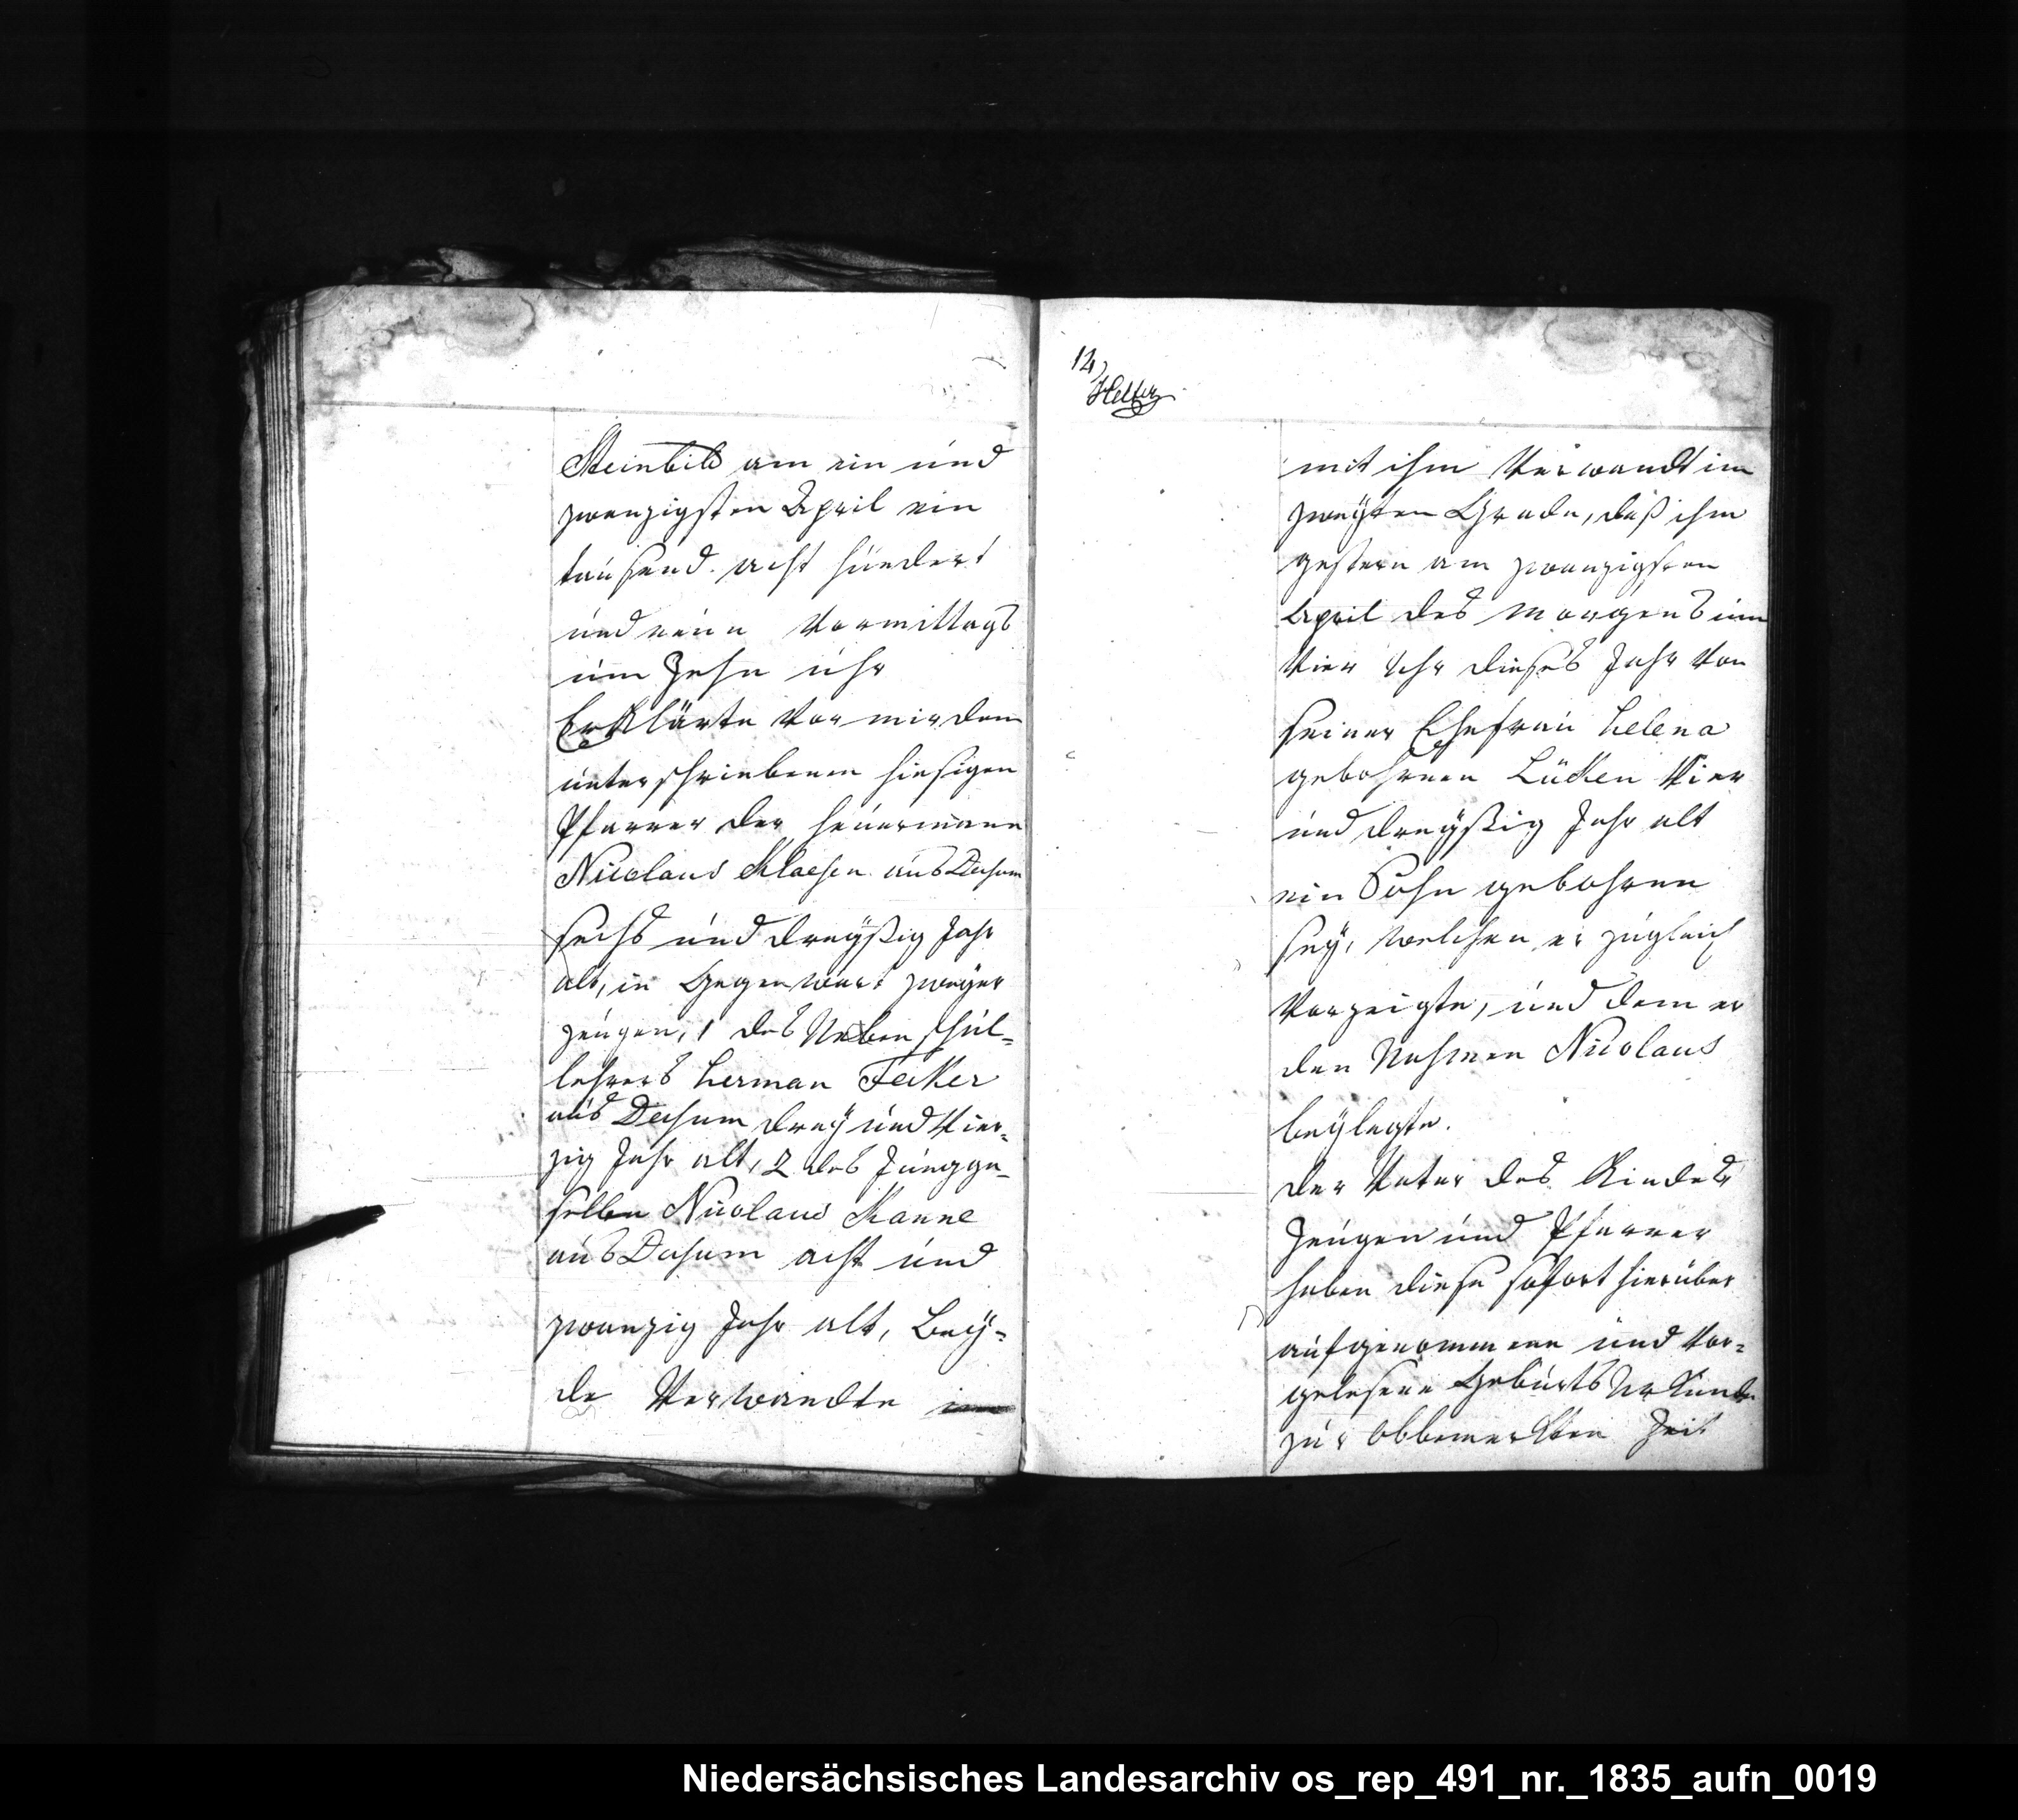 Steinbild am ein und
zwanzigsten April ein
tausend acht hundert
und neun Vormittags
um Zehn uhr
Erklärte Vor mir dem
unterschriebenen hiesigen
Pfarrer der heuermann
Nicolaus Klaesen aus Dersum
sechs und dreyßig Jahr
alt, in Gegenwart zweyer
zeugen, 1 des Neben schul=
lehrers Herman
aus Dersum drey und Vier=
zig Jahr alt, 2 des Jungge=
sellen Nicolaus Kanne
aus Dersum acht und
zwanzig Jahr alt, Bey=
de Verwandte im
14)
mit ihm Verwandt im
zweyten Grade, daß ihm
gestern am zwanzigsten
April des Morgens um
Vier Uhr dieses Jahr Von
seiner Ehefrau Helena
gebohrnen Lücken Vier
und dreyßig Jahr alt
ein Sohn gebohren
sey, Welchen er zugleich
Vorzeigte, und dem er
den Nahmen Nicolaus
beylegte.
der Vater des Kindes
Zeugen und Pfarrer
haben diese sofort hierüber
aufgenommene und Vor=
gelesene Geburts Urkunde
zur obbemerkten Zeit
Niedersächsisches Landesarchiv os_rep_491_nr._1835_aufn_0019